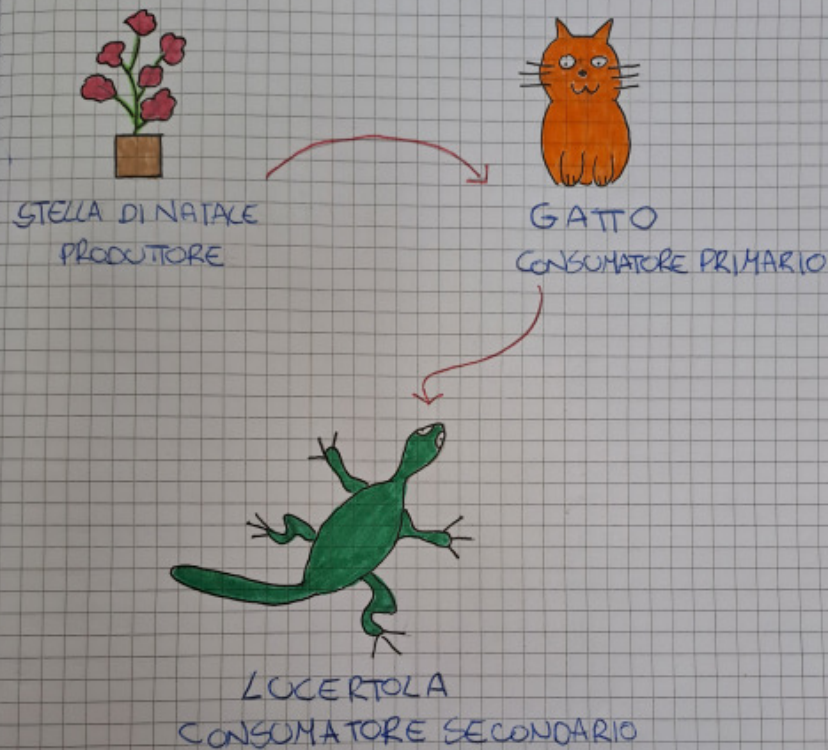 STELLA DI NATALE
PRODUTTORE
GATTO
CONSUMATORE PRIMARIO
LUCERTOLA
CONSUMATORE SECONDARIO